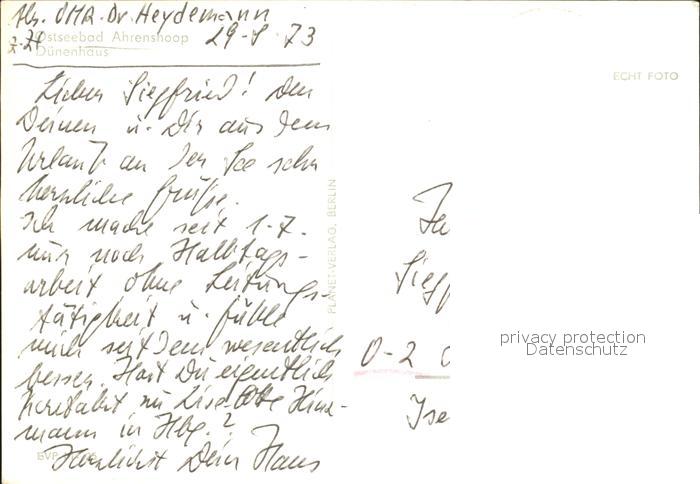 Abs. OMR. Dr. Heydemann
z. Zt. 29-8-73
Ostseebad Ahrenshoop
Dünenhaus
ECHT FOTO
Lieber Siegfried! Den
Deinen u. Dir aus dem
Urlaub an der See sehr
herzliche Grüße.
Ich mache seit 1.7.
nur noch Halbtags-
arbeit ohne Leitungs-
tätigkeit u. fühle
mich seitdem wesentlich
besser. Hast Du eigentlich
Kontakt mit Lise-Lotte Hinz-
mann in Hbg.?
Herzlichst Dein Hans
PLANET-VERLAG, BERLIN
Siegf
O-2
Ise
privacy protection
Datenschutz